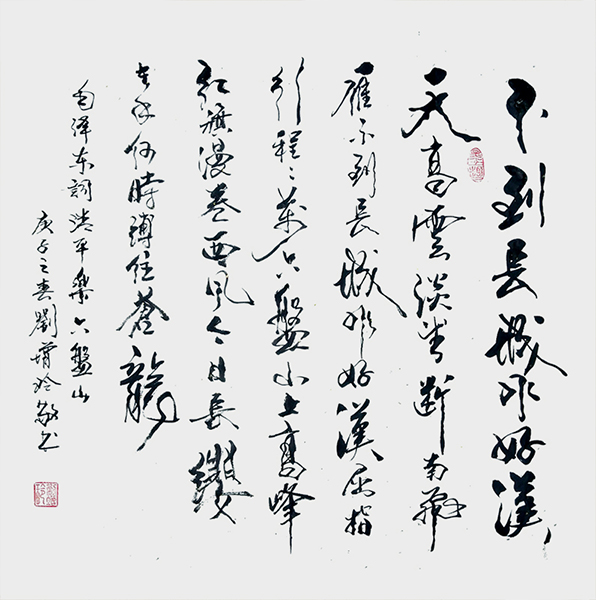 不到長城非好漢
天高雲淡望斷南飛
雁不到長城非好漢屈指
行程二萬六盤山上高峰
紅旗漫卷西風今日長纓
在手何時縛住蒼龍
毛澤东詞清平樂六盤山
庚子之春劉增玲敬书